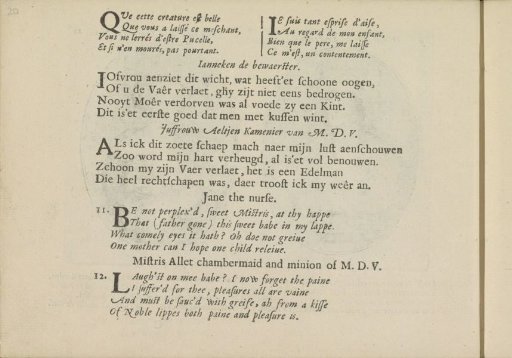 QVe cette creature est belle
Que vous a laissé ce m-schant,
Vous ne lerrés d'estre Pucelle,
Et si n'en mourés, pas pourtant.
IE suis tant esprise d'aise,
Au regard de mon enfant,
Bien que le pere, me laisse
Ce m'est, un contentement.
Ianneken de bewaerster.
IOfvrou aenziet dit wicht, wat heeft'et schoone oogen,
Of u de Vaêr verlaet, ghy zijt niet eens bedrogen.
Nooyt Moêr verdorven was al voede zy een Kint.
Dit is'et eerste goed dat men met kussen wint.
Juffrouw Aeltjen Kamenier van M. D. V.
ALs ick dit zoete schaep mach naer mijn lust aenschouwen
Zoo word mijn hart verheugd, al is'et vol benouwen.
Zchoon my zijn Vaer verlaet, het is een Edelman
Die heel rechtschapen was, daer troost ick my weêr an.
Jane the nurse.
11. BE not perplex'd, sweet Mistris, at thy happe
Thus (father gone) this sweet babe in my lappe.
What comely eyes it hath? Oh doe not greiue
One mother can I hope one child releiue.
Mistris Allet chambermaid and minion of M. D. V.
12. LAugh'st on mee babe? I now forget the paine
I suffer'd for thee, pleasures all are vaine
And must be sauc'd with greife, ah from a kisse
Of Noble lippes both paine and pleasure is.